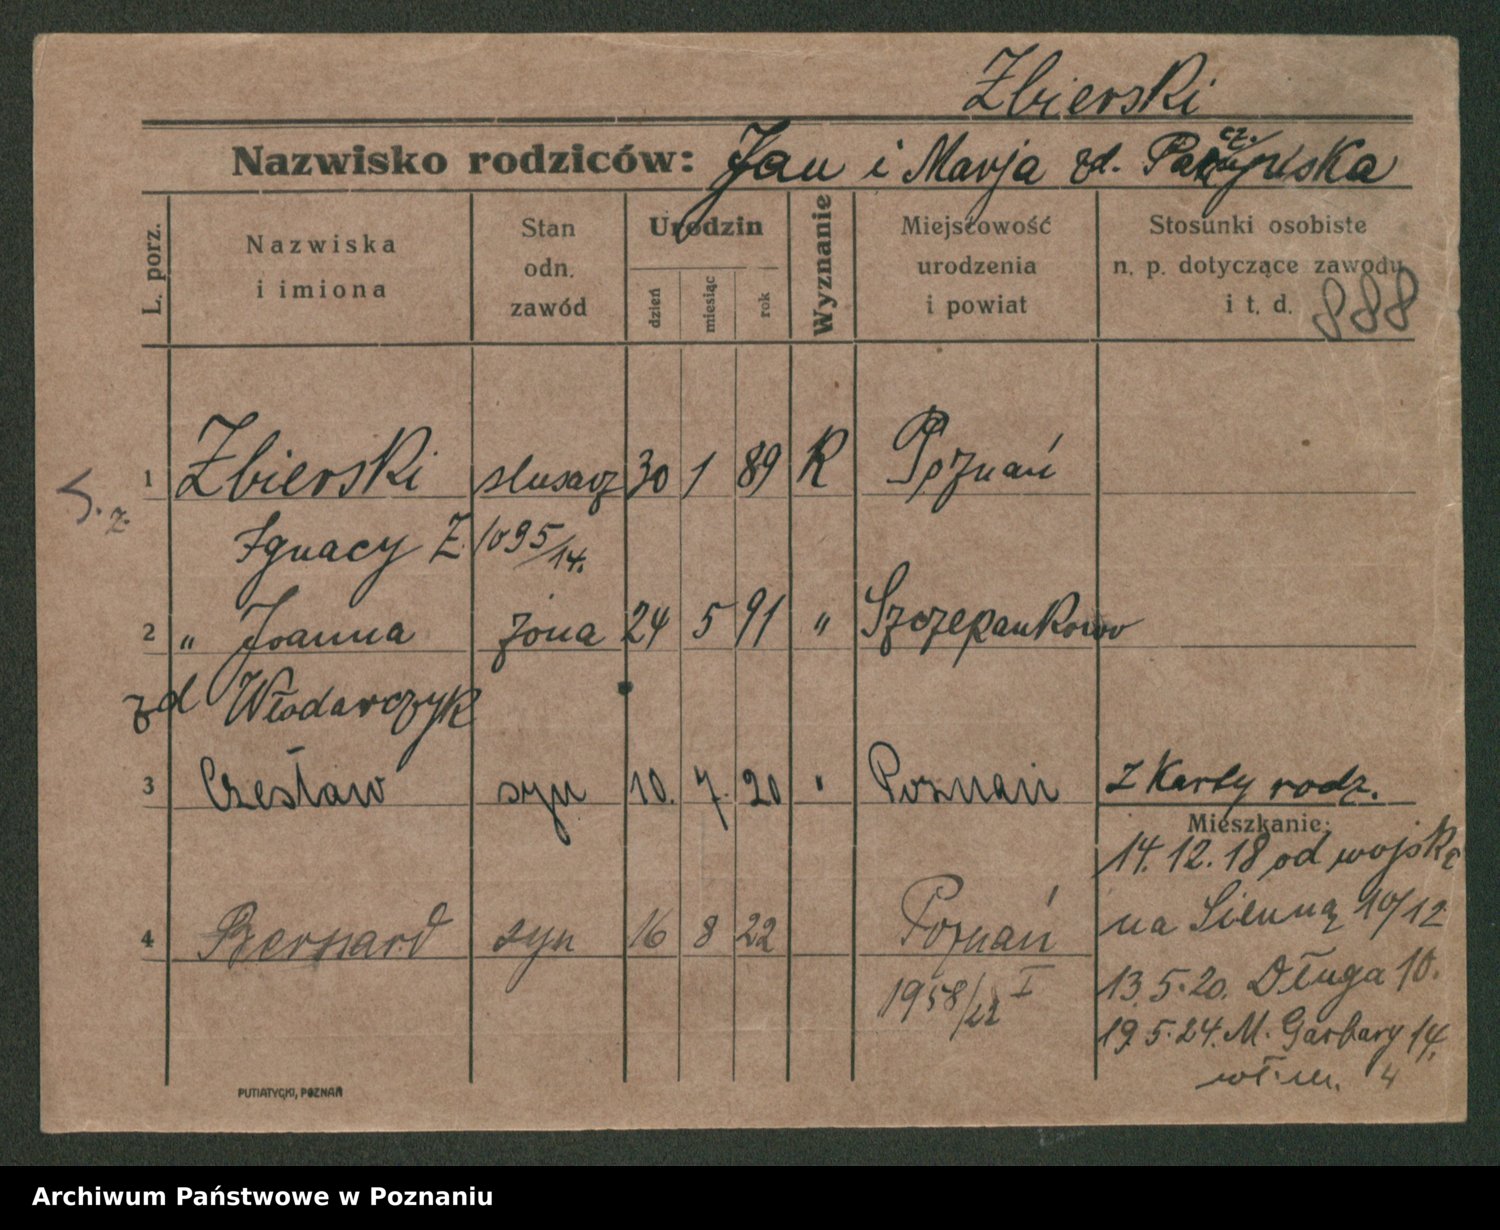 Zbierski
Nazwisko rodziców: Jan i Marja zd.
L. porz.
Nazwiska i imiona
Stan odn. zawód
Urodzin
dzień miesiąc rok
Wyznanie
Miejscowość urodzenia i powiat
Stosunki osobiste n. p. dotyczące zawodu i t. d.
888
1 Zbierski slusarz 30 1 89 K Poznań
S. z.
Ignacy Z. 1095/14.
2 " Joanna żona 24 5 91 " Szczepankowo
zd Włodarczyk
3 Czesław syn 10. 7. 20 " Poznań z Karty rodz.
Mieszkanie:
14.12.18 od wojska
4 Bernard syn 16 8 22 Poznań
na Sienną 10/12
1958/22 I
13.5.20. Długa 10.
19.5.24. M. Garbary 14,
4
PUTIATYCKI, POZNAŃ
Archiwum Państwowe w Poznaniu